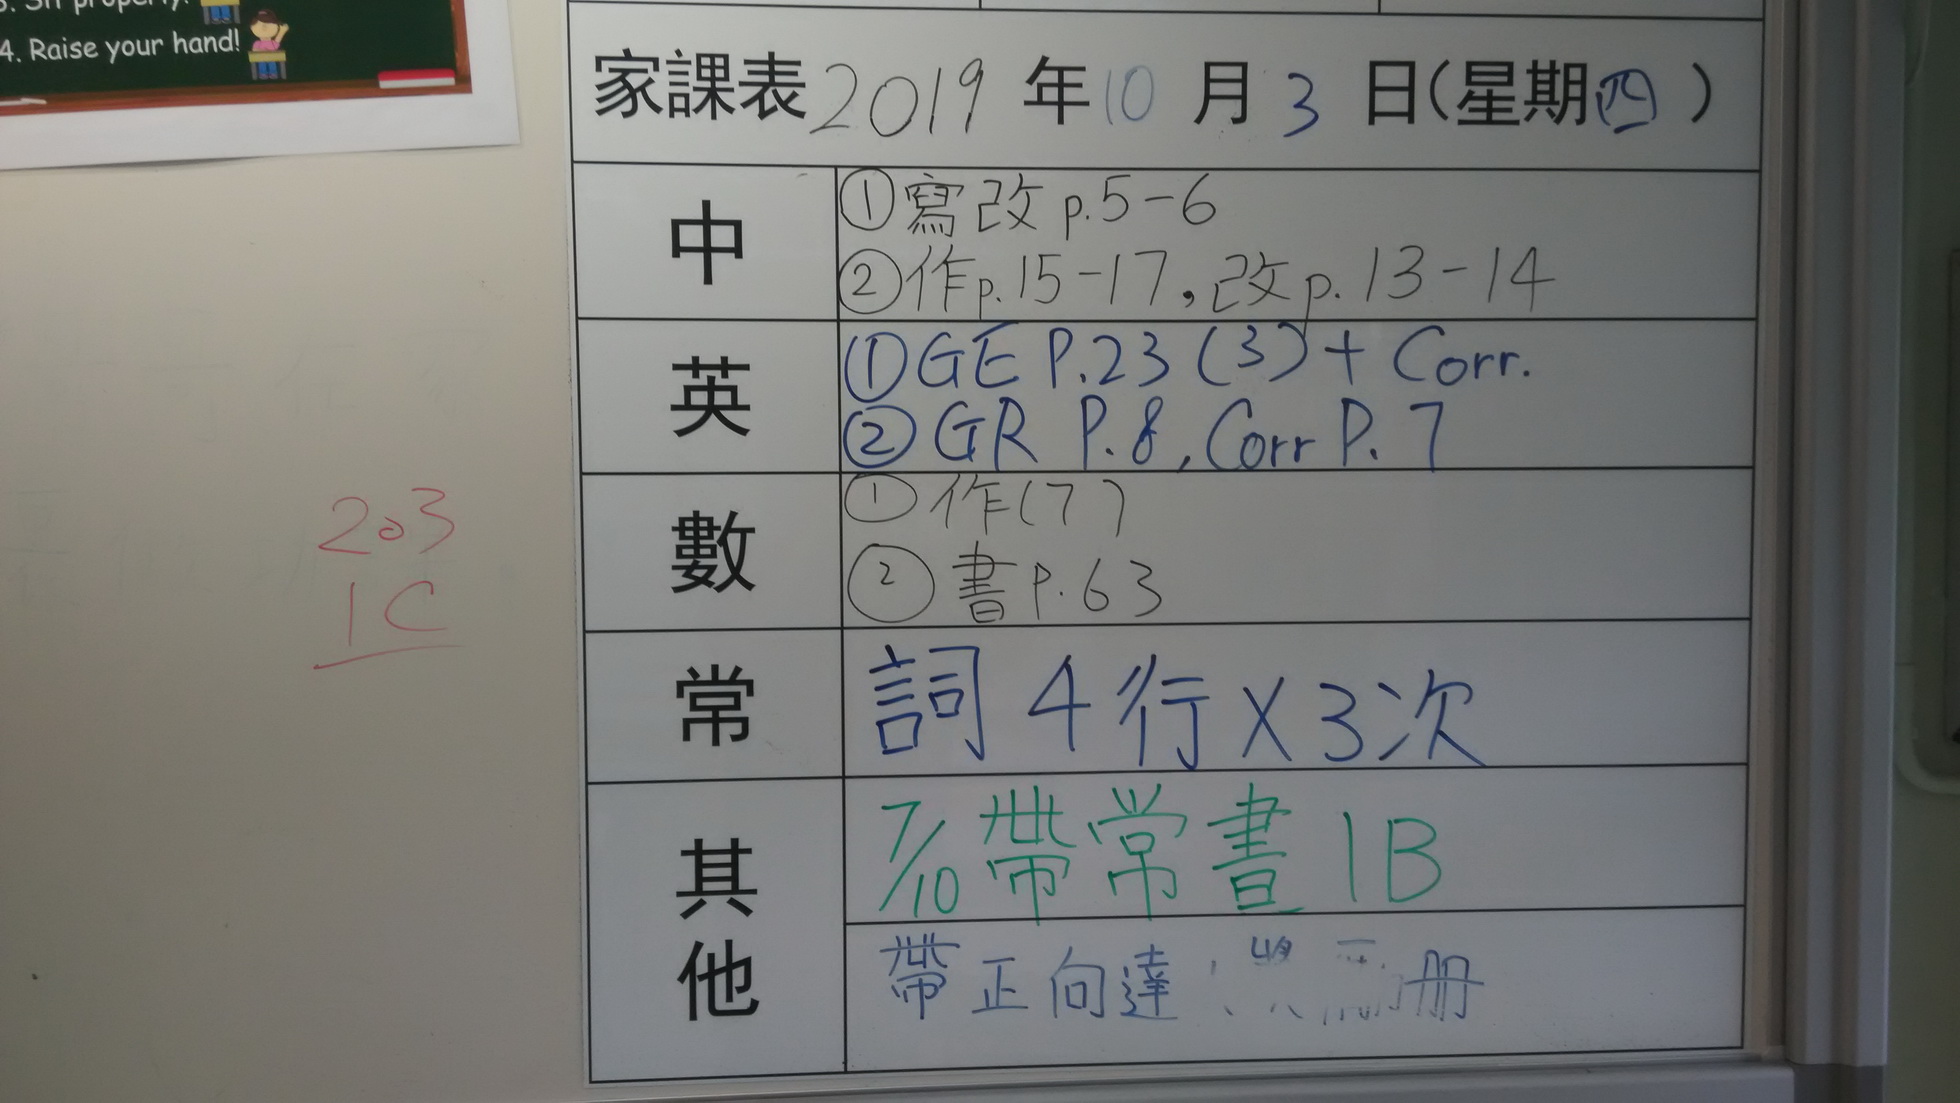 3. Sit properly!
4. Raise your hand!
家課表 2019 年 10 月 3 日(星期四)
中
①寫改 p.5-6
②作p.15-17,改p.13-14
英
①GE P.23 (3) + Corr.
② GR P.8, Corr P.7
數
① 作(7)
② 書P.63
常
詞 4 行 X 3 次
其他
7/10 帶常書 1B
帶正向達 冊
203
1C